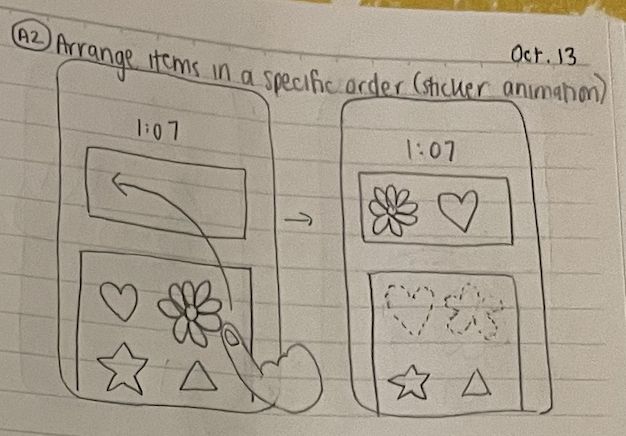 A2 Arrange items in a specific order (sticker animation)
Oct. 13
1:07
1:07